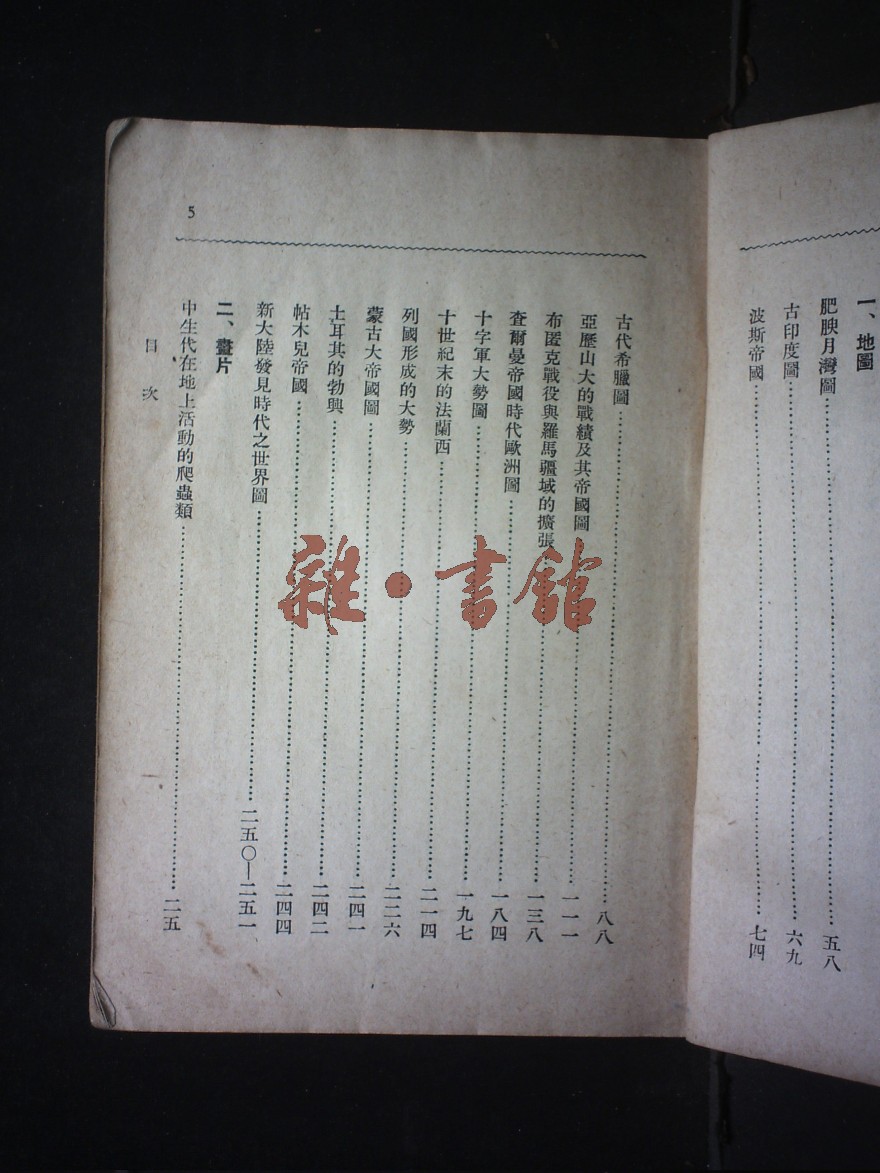 一、地圖
肥腴月灣圖……五八
古印度圖……六九
波斯帝國……七四
5
古代希臘圖……八八
亞歷山大的戰績及其帝國圖……一一一
布匿克戰役與羅馬疆域的擴張……一三八
查爾曼帝國時代歐洲圖……一八四
十字軍大勢圖……一九七
十世紀末的法蘭西……二一四
列國形成的大勢……二二六
蒙古大帝國圖……二四一
土耳其的勃興……二四二
帖木兒帝國……二四四
新大陸發見時代之世界圖……二五〇—二五一
二、畫片
中生代在地上活動的爬蟲類……二五
目次
雜·書館